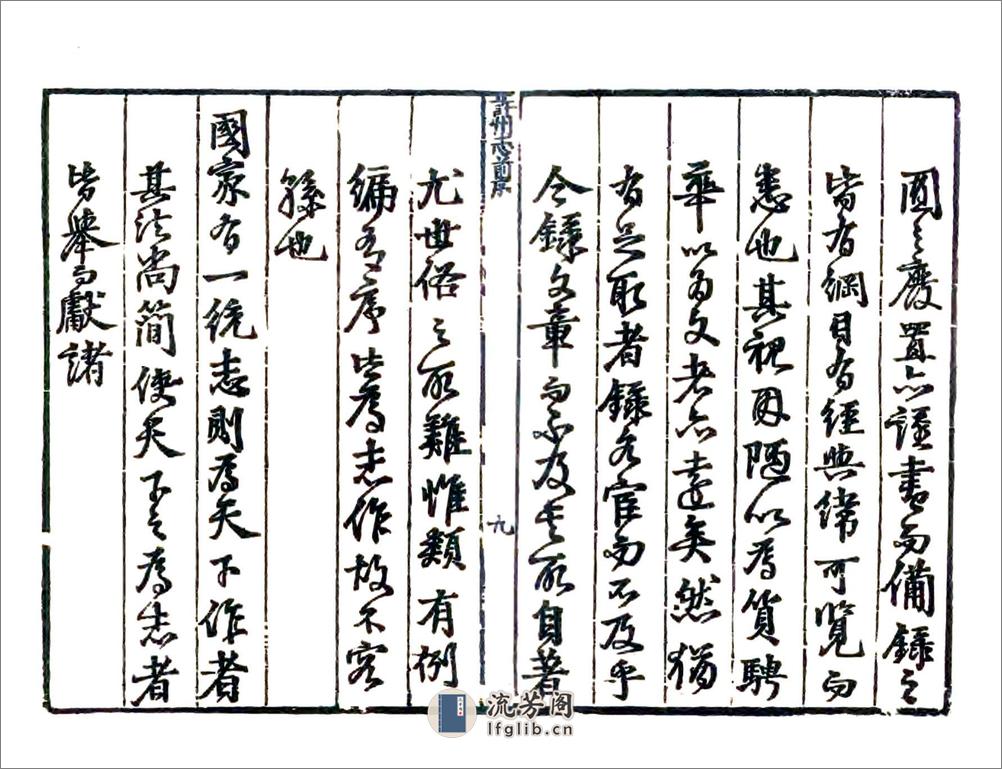 圓之廢置亦謹書而備錄之
皆有綱目有經與緯可覽而
悉也其視因陋以為質騁
華以為文者亦遠矣然猶
有足取者錄名宦而不及乎
令錄文章而不及其所自著
許州志前序
九
尤世俗之所難惟類有例
編有序皆為志作故不容
繇也
國家有一統志則為天下作者
其法尚簡使天下之為志者
皆舉而獻諸
流芳阁
lfglib.cn